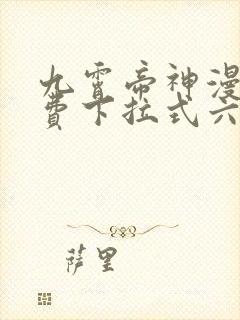 九霄帝神漫
费下拉式六
萨里